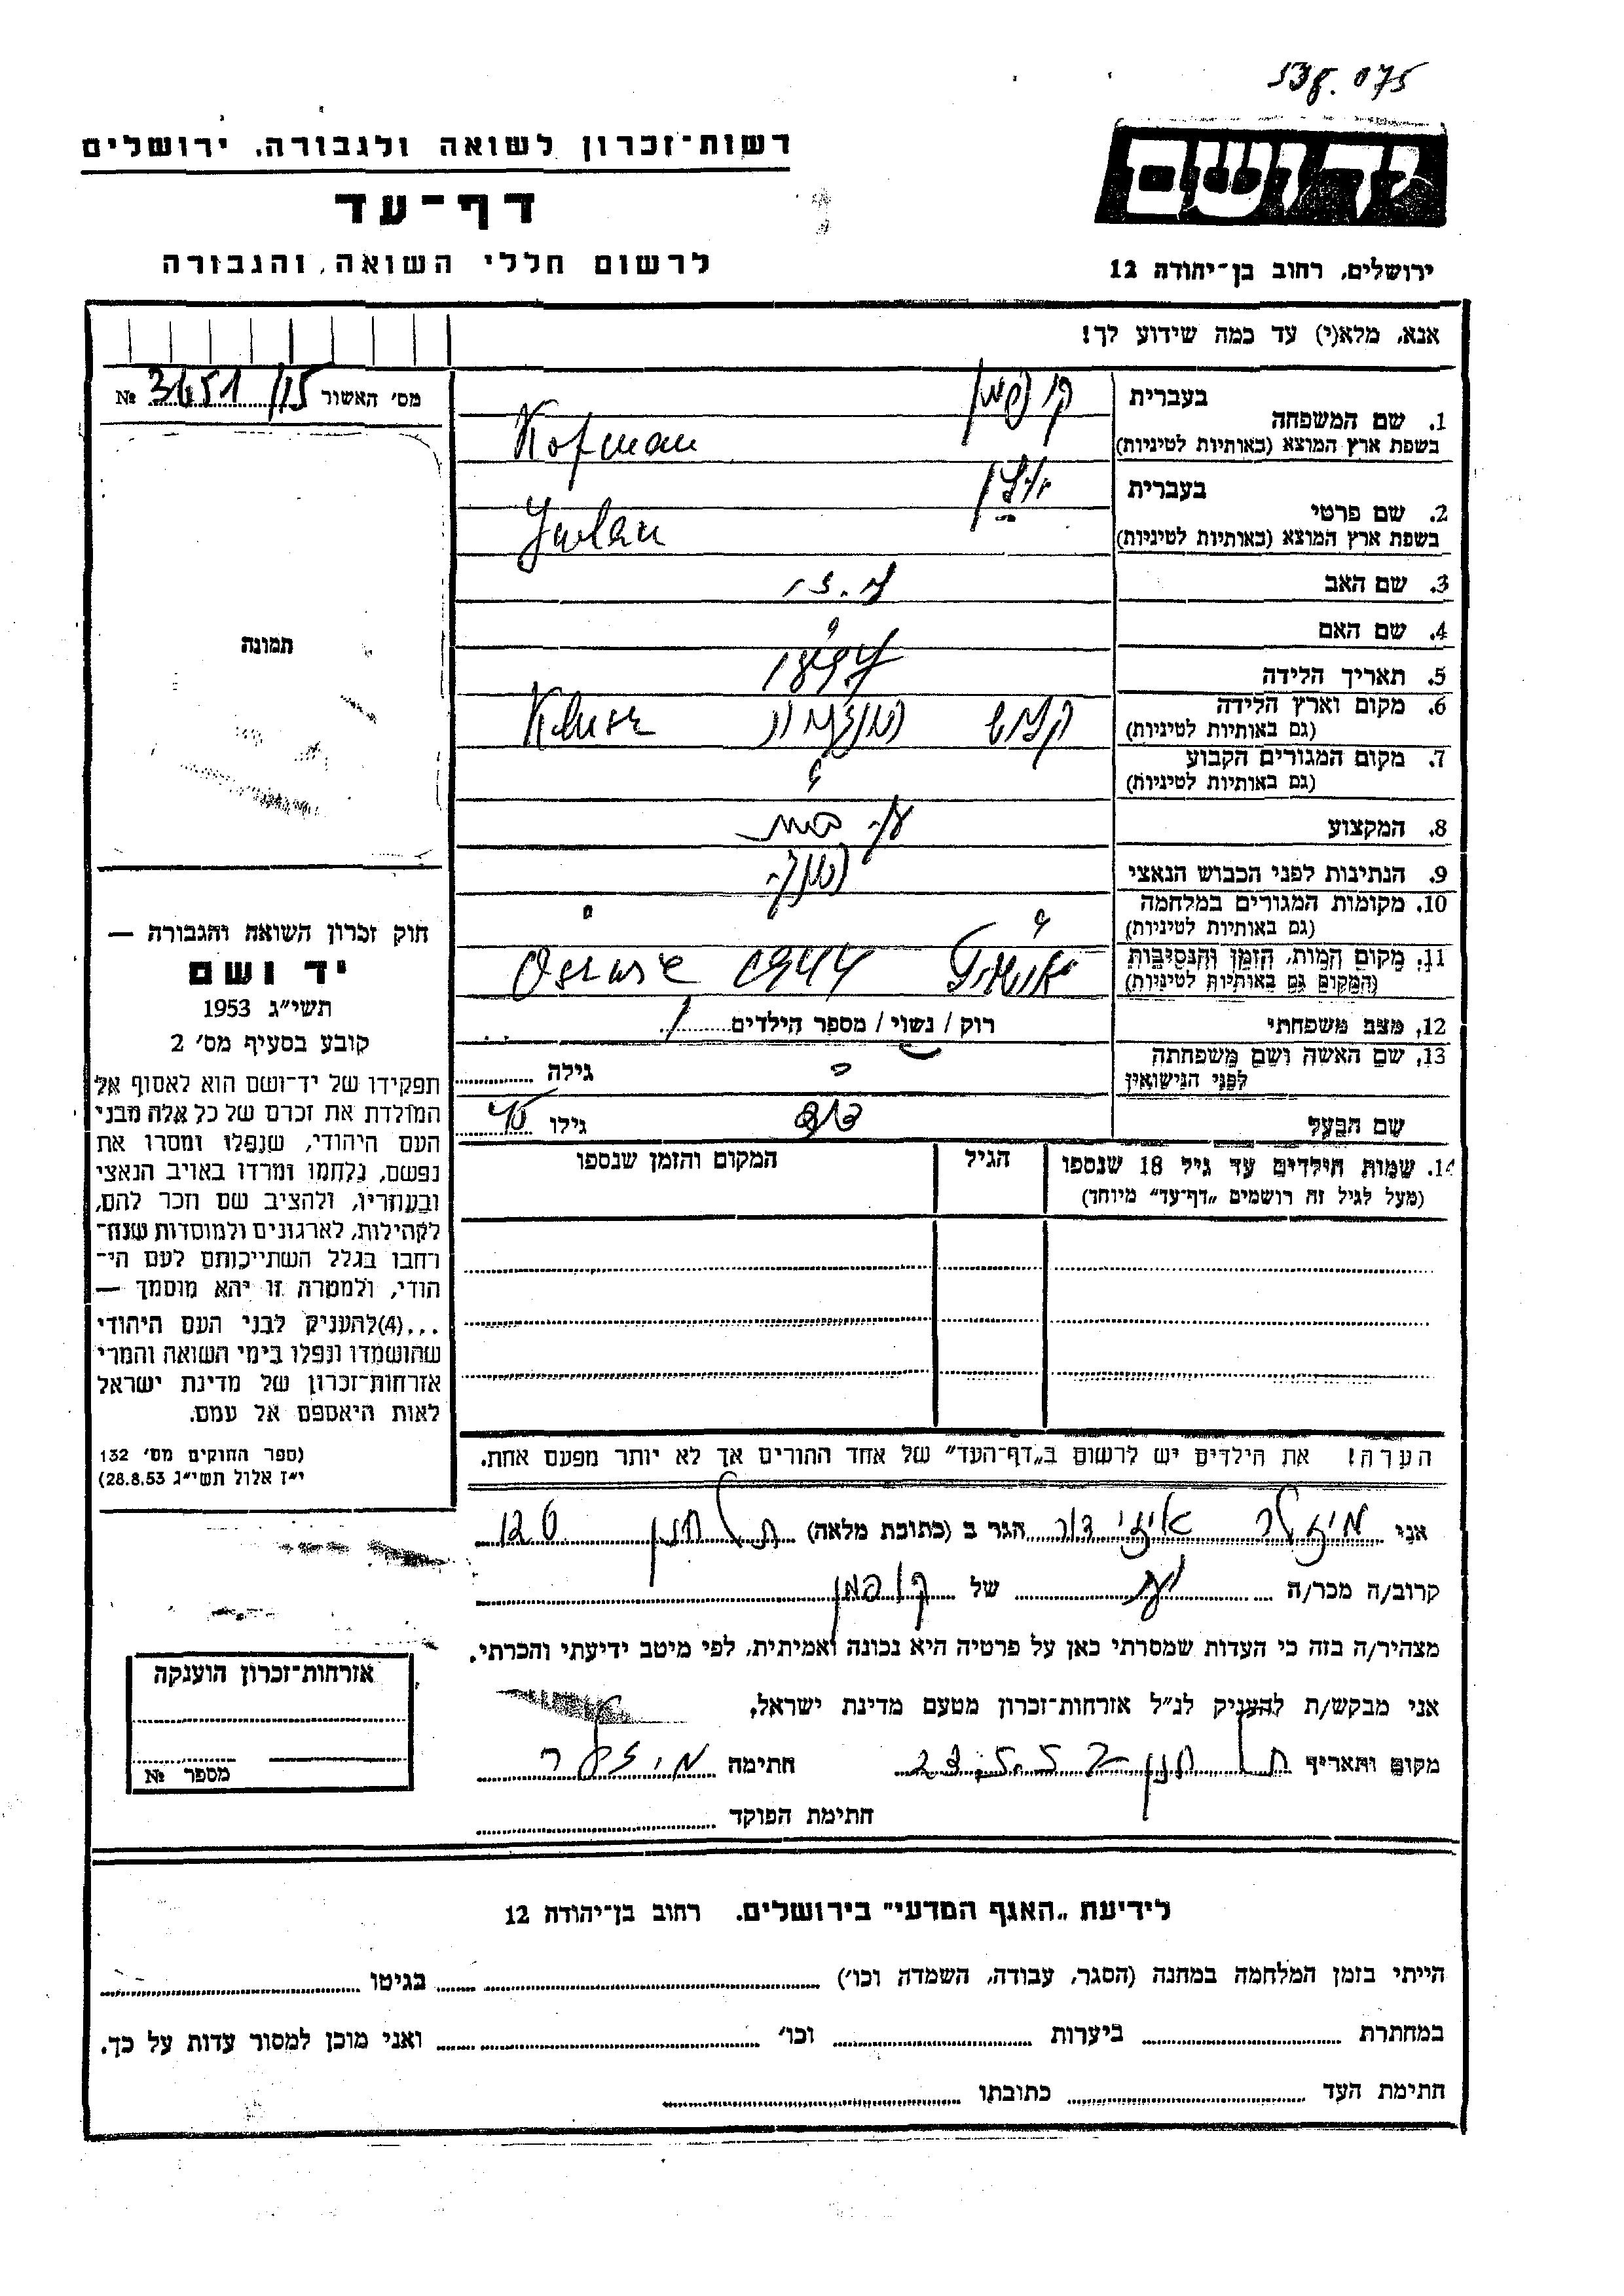 538.075
יד ושם
ירושלים, רחוב בן־יהודה 12
רשות־זכרון לשואה ולגבורה, ירושלים
דף־עד
לרשום חללי השואה והגבורה
אנא, מלא(י) עד כמה שידוע לך!
מס׳ האשור №
1. שם המשפחה
בעברית קופמן
בשפת ארץ המוצא (באותיות לטיניות) Kofman
2. שם פרטי
בעברית
בשפת ארץ המוצא (באותיות לטיניות)
3. שם האב
4. שם האם ?
5. תאריך הלידה 1897
6. מקום וארץ הלידה
(גם באותיות לטיניות)
7. מקום המגורים הקבוע ?
(גם באותיות לטיניות)
8. המקצוע
9. הנתינות לפני הכבוש הנאצי
10. מקומות המגורים במלחמה ?
(גם באותיות לטיניות)
11. מקום המות, הזמן והנסיבות 1944
(המקום גם באותיות לטיניות)
12. מצב משפחתי רוק / נשוי / מספר הילדים 1
13. שם האשה ושם משפחתה
לפני הנישואין גילה
שם הבעל גילו
14. שמות הילדים עד גיל 18 שנספו
(מעל לגיל זה רושמים „דף־עד” מיוחד)
הגיל
המקום והזמן שנספו
תמונה
חוק זכרון השואה והגבורה —
יד ושם
תשי״ג 1953
קובע בסעיף מס׳ 2
תפקידו של יד־ושם הוא לאסוף אל
המולדת את זכרם של כל אלה מבני
העם היהודי, שנפלו ומסרו את
נפשם, נלחמו ומרדו באויב הנאצי
ובעוזריו, ולהציב שם וזכר להם,
לקהילות, לארגונים ולמוסדות שנח־
רחבו בגלל השתייכותם לעם הי־
הודי, ולמטרה זו יהא מוסמך —
...(4)להעניק לבני העם היהודי
שהושמדו ונפלו בימי השואה והמרי
אזרחות־זכרון של מדינת ישראל
לאות היאספם אל עמם.
(ספר החוקים מס׳ 132
י״ז אלול תשי״ג 28.8.53)
הערה! את הילדים יש לרשום ב„דף־העד” של אחד ההורים אך לא יותר מפעם אחת.
אני מיזלר איזידור הגר ב (כתובת מלאה)
קרוב/ה מכר/ה של קופמן
מצהיר/ה בזה כי העדות שמסרתי כאן על פרטיה היא נכונה ואמיתית, לפי מיטב ידיעתי והכרתי.
אני מבקש/ת להעניק לנ״ל אזרחות־זכרון מטעם מדינת ישראל.
מקום ותאריך חתימה מיזלר
חתימת הפוקד
אזרחות־זכרון הוענקה
מספר №
לידיעת „האגף המדעי” בירושלים. רחוב בן־יהודה 12
הייתי בזמן המלחמה במחנה (הסגר, עבודה, השמדה וכו׳) בגיטו
במחתרת ביערות וכו׳ ואני מוכן למסור עדות על כך.
חתימת העד כתובתו